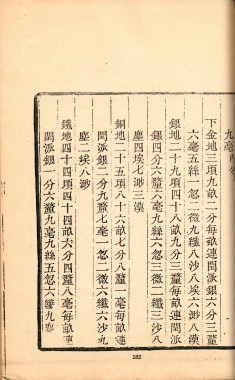 下金地三項九畝二分每畝連閏派銀六分三釐
六毫五絲一忽二微九纖八沙八埃六渺八漠
銀地二十九項四十八畝九分三釐每畝連閏派
銀四分六釐六毫九絲六忽三微二纖三沙八
塵四埃七渺三漠
銅地二十五項八十六畝七分八釐一毫每畝連
閏派銀二分九釐七毫一忽二微六纖六沙九
塵二埃八渺
鐵地四十四項四十四畝六分四釐八毫每畝連
閏派銀一分六釐九毫九絲五忽六纖九
182